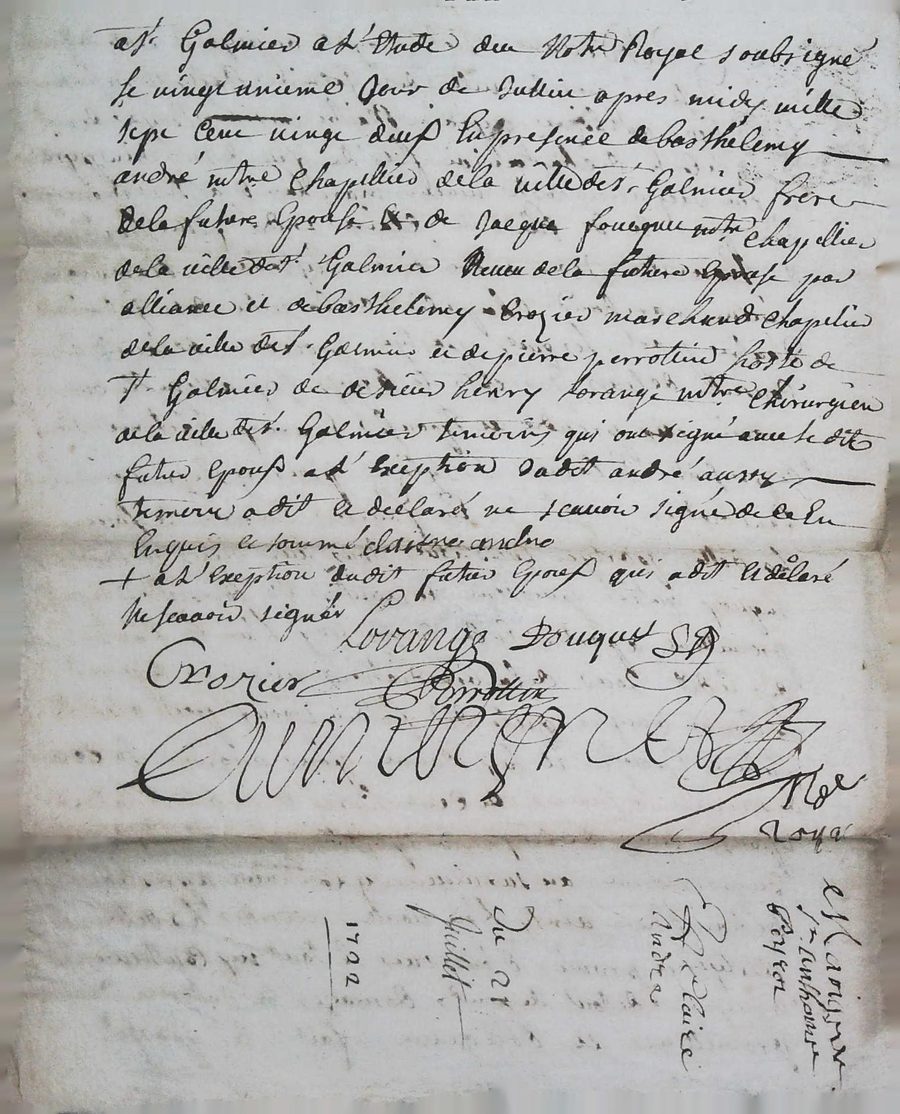 a st Galmier a l'Etude du Notre Royal soubsigné
le vingt unieme Jour de Juillie apres midy mille
sept Cent vingt deux En presence de barthelemy
andré mtre Chapellier de la ville de st Galmier frere
de la future Epouse & de Jacque fouque mtre Chapellier
de la ville de st Galmier Neveu de la future Epouse par
alliance et de barthelemy Crozier marchand Chapelier
de la ville de st Galmier et de pierre perrottin hoste de
st Galmier de de sieur henry Lorange mtre Chirurgien
de la ville de st Galmier temoins qui ont signé avec le dit
futur Epoux a l'Exeption dudit andré aussy
temoin a dit et declaré ne scavoir signé de ce En
Enquis et sommé andre
+ a l'Exeption dudit futur Epoux qui a dit et declaré
Ne scavoir signér
Lorange Fouque
Crozier Perrottin
Nre
Royal
Mariage
Anthoine
Peyron
Claire
André
Du 21
Juillet
1722